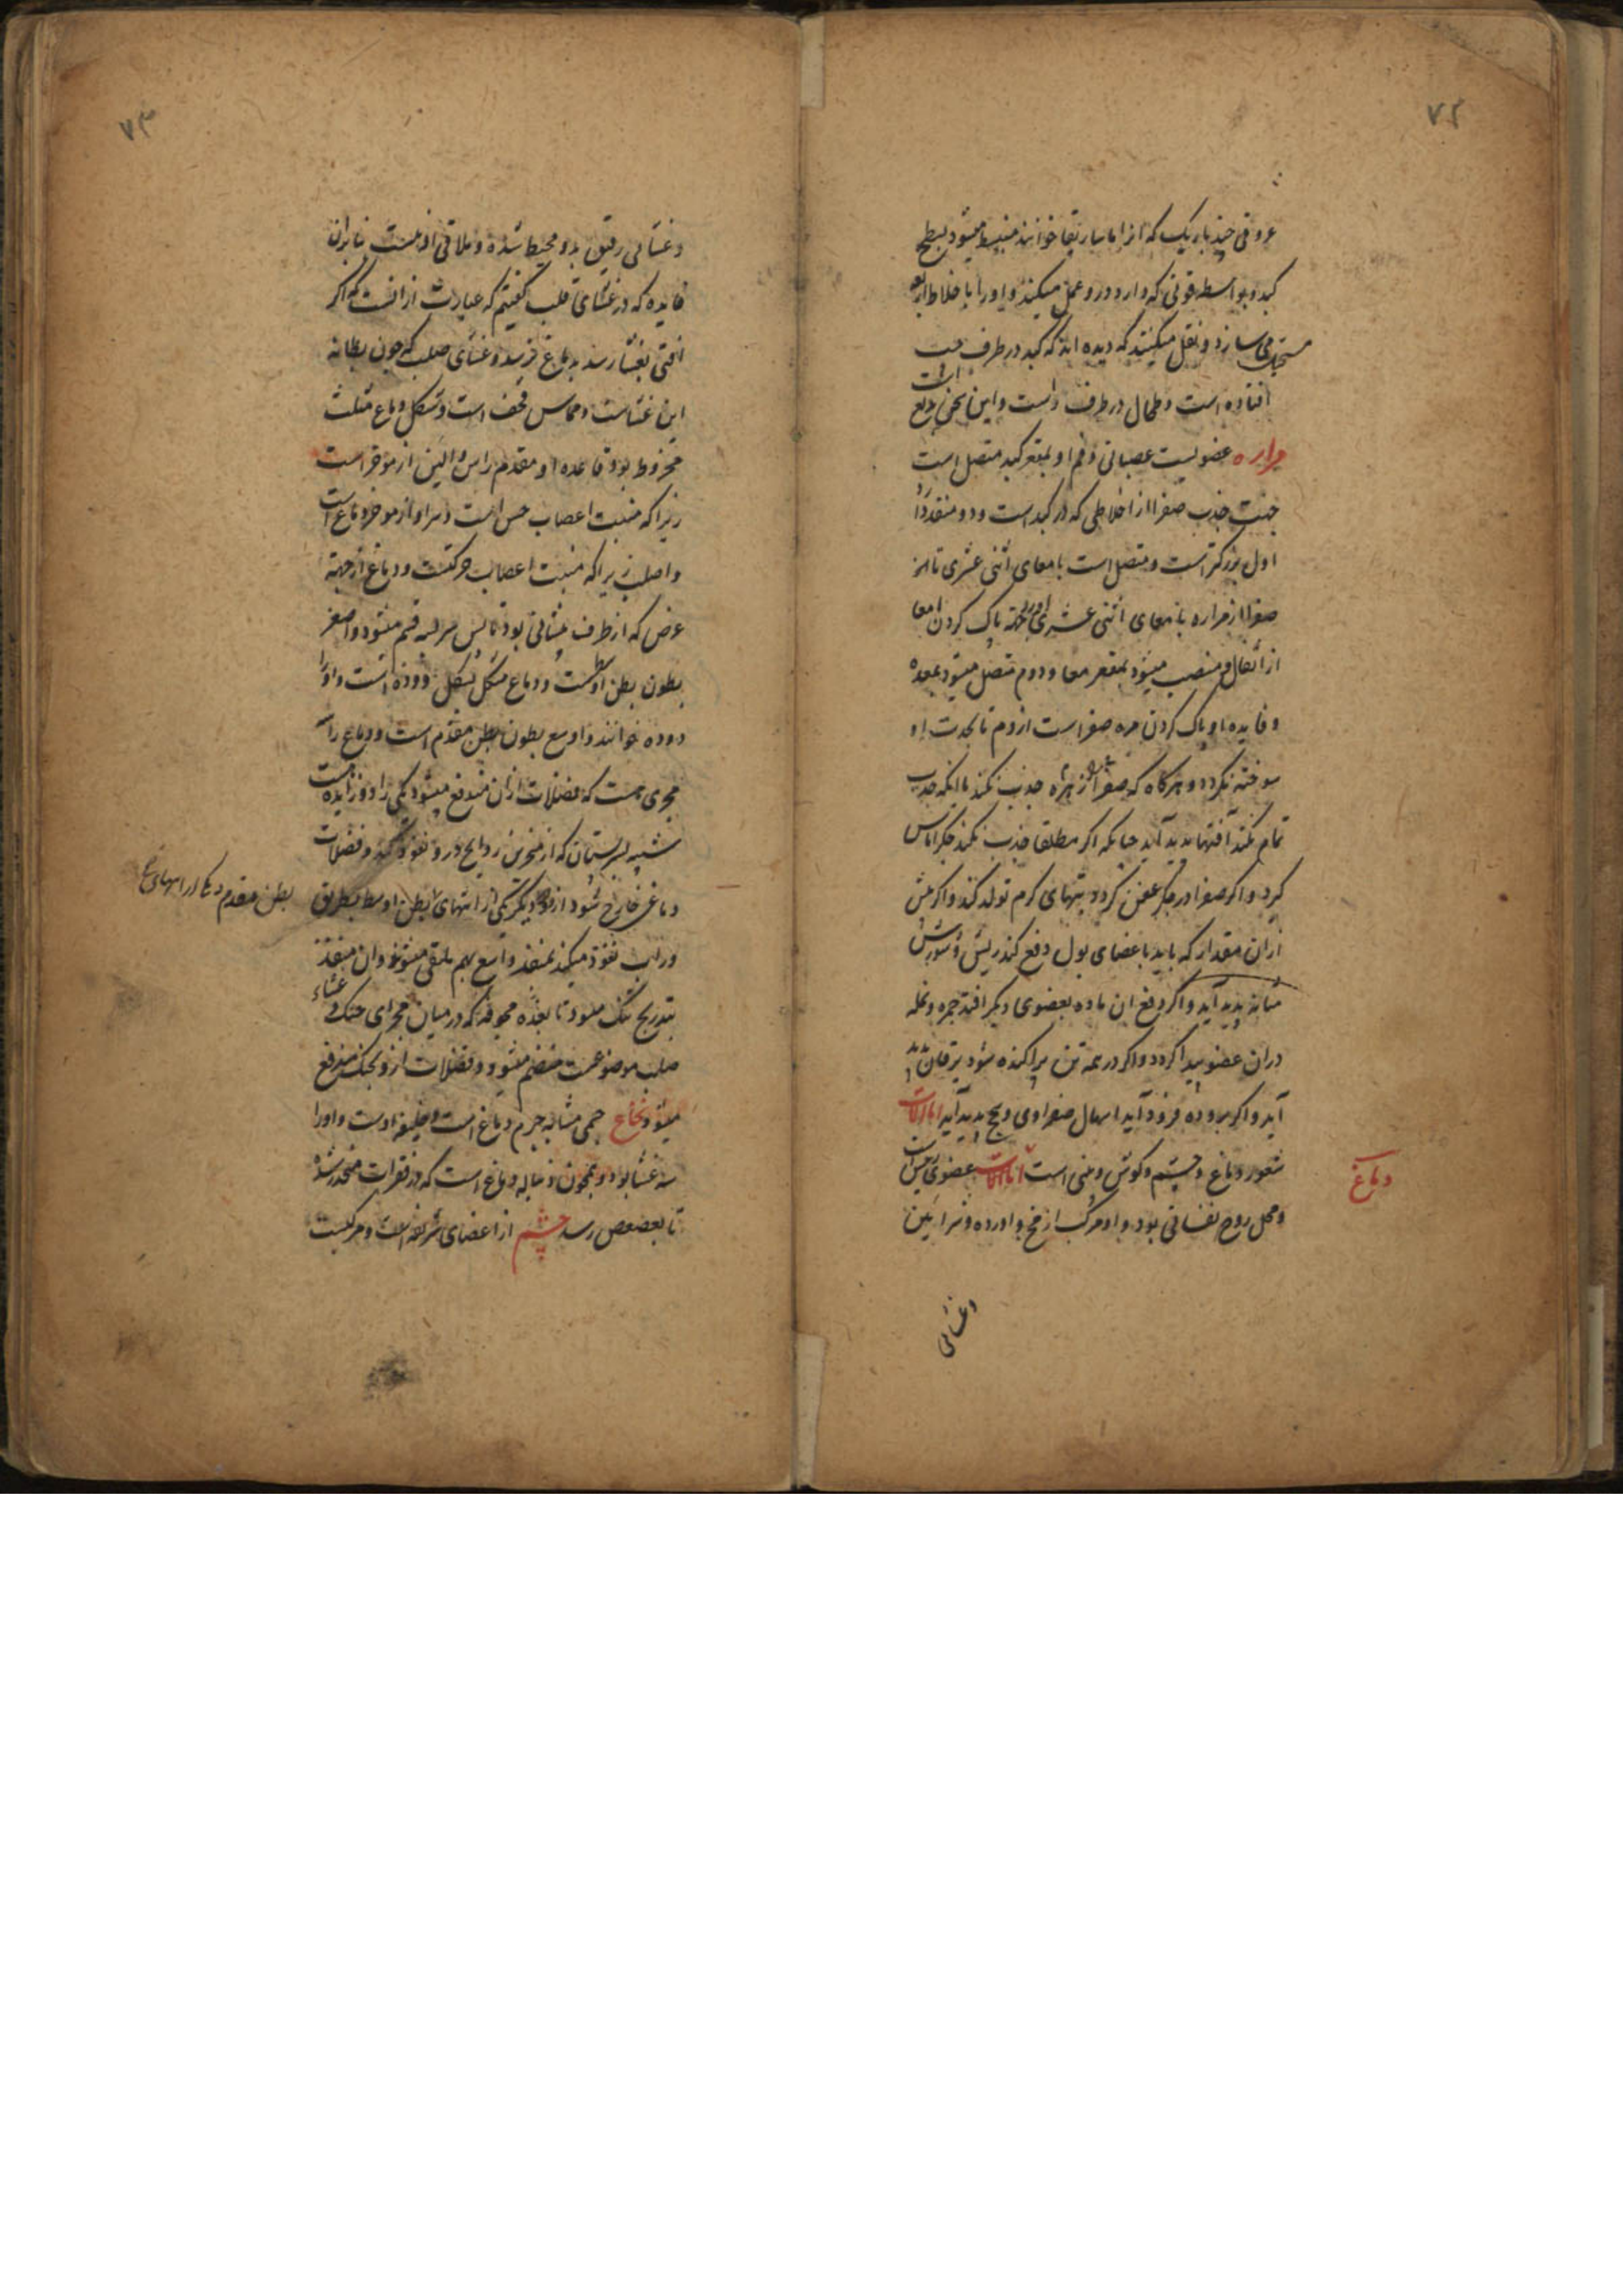 ۷۲
عروقی چند باریک که انرا ماساریقا خوانند منبسط میشود بسطح
کبد و بواسطه قوتی که دارد درو عمل میکند و اورا باخلاط اربعه
مستحیل می سازد و نقل میکنند که دیده اند که کبد در طرف چپ
افتاده است و طحال در طرف راست و این نخی بدیع است
مراره عضویست عصبانی و فم او بمقعر کبد متصل است
جهت جذب صفرا از اخلاطی که در کبد است و دو منفذ دارد
اول بزرگتر است و متصل است بامعای اثنی عشری تا از
صفرا از مراره بامعای اثنی عشری اورید جهة پاک کردن امعا
از اثفال و منصب میشود بمقعر معا و دوم متصل میشود بمعده
و فایده او پاک کردن مره صفراست از دم تا بحدت او
سوخته نکردد و هرکاه که صفرا از زهره جذب نکند یا انکه جذب
تمام نکند آفتها پدید آید چنانکه اکر مطلقا جذب نکند جکر اماس
کیرد و اکر صفرا در جکر عفن کردد تبهای کرم تولد کند و اکر بیش
ازان مقدار که باید باعضای بول دفع کند ریش و سوزش
مثانه پدید آید و اکر دفع ان ماده بعضوی دیکر افتد جمره و نمله
دران عضو پیدا کردد و اکر در همه تن پراکنده شود یرقان پدید
آید و اکر بروده فرود آید اسهال صفراوی و سحج پدید آید اما آلات
شعور دماغ و چشم و کوش و منی است اما آلات عضوی رئیس است
دماغ
و محل روح نفسانی بود و او مرکب از مخ و اورده و شرائین
و غشائی
۷۳
و غشائی رقیق بدو محیط شده و ملاقی اوهست بنابران
فایده که در غشای قلب کفتیم که عبارت از انست که اکر
افتی بغشا رسد بدماغ نرسد و غشای صلب که چون بطانه
این غشاست و مماس قحف است و شکل دماغ مثلث
مخروط بود قاعده او مقدم راس و الین از موخر است
زیرا که منبت اعصاب حس است و سر او از موخر دماغ است
و اصلب زیرا که منبت اعصاب حرکتست و دماغ از جهة
عرض که از طرف پیشانی بود تا پس سر بسه قسم میشود و اصغر
بطون بطن اوسطست و دماغ مشکل بشکل دوده است و اورا
دوده خوانند و اوسع بطون بطن مقدم است و دماغ را
مجری هست که فضلات ازان مندفع میشود یکی را دو زایده هست
شبیه بسر پستان که از منخرین روایح درو نفوذ کند و فضلات
دماغ خارج شود ازو و دیکر یکی از انتهای بطن اوسط بطریق
بطن مقدم دیکر از انتهای
وراب نفوذ میکند بمنفذ واسع بهم ملتقی میشوند و ان منفذ
بتدریج تنک میشود تا بغده مجوفه که در میان مجرای حنک و غشاء
صلب موضوعست منضم میشود و فضلات ازو بحنک مندفع
میشود نخاع جسمی مشابه جرم دماغ است و خلیفه اوست و اورا
سه غشا بود و همچون ذنابه دماغ است که در فقرات منحدر شده
تا بعصعص رسد چشم از اعضای شریفه است و مرکبست